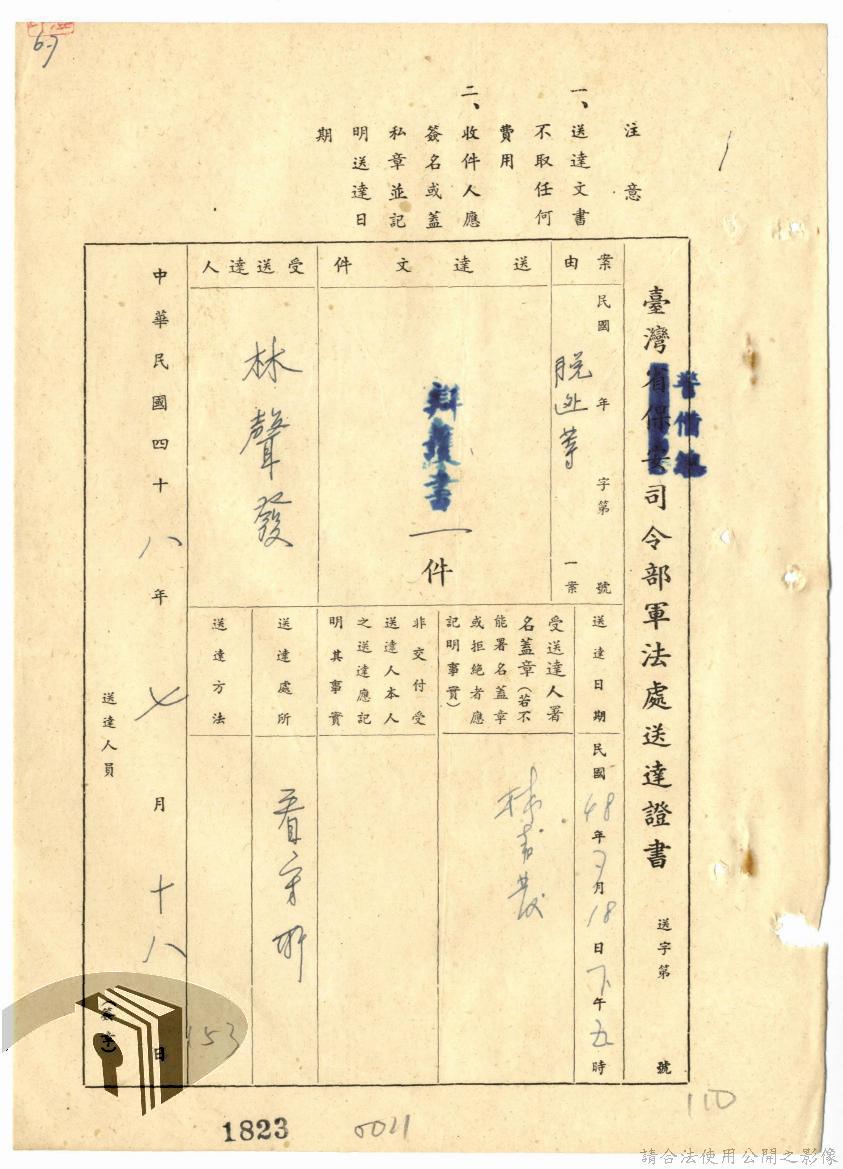 注意
一、送達文書
不取任何
費用
二、收件人應
簽名或蓋
私章並記
明送達日
期
臺灣省保安司令部軍法處送達證書 送字第 號
警備總
案由
民國 年 字第 號
脫逃等 一案
送達文件
辯護書一件
受送達人
林聲發
送達日期
民國48年7月18日下午五時
受送達人署
名蓋章(若不
能署名蓋章
或拒絕者應
記明事實)
林聲發
非交付受
送達人本人
之送達應記
明其事實
送達處所
看守所
送達方法
中華民國四十八年七月十八日
送達人員
(簽章)
453
1823
0021
110
67
請合法使用公開之影像